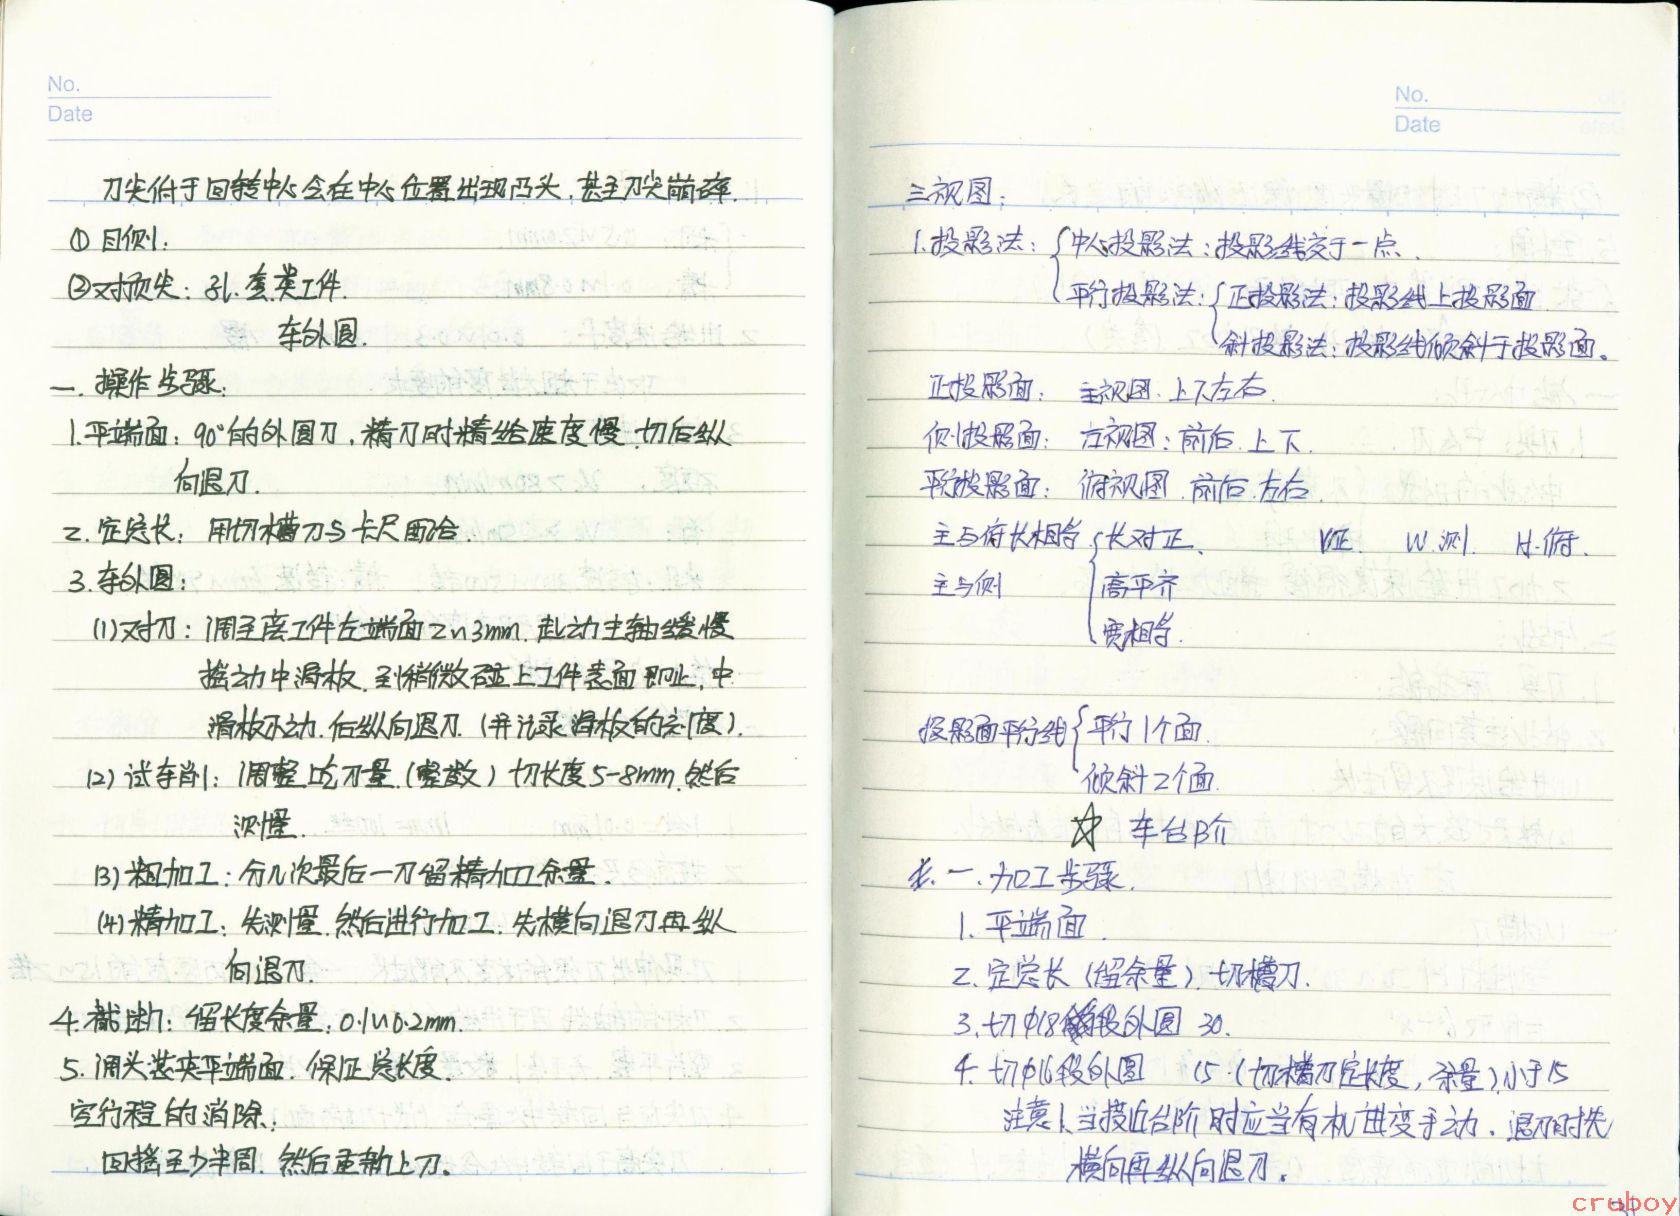 No.
Date
刀尖低于回转中心会在中心位置出现凸头,甚至刀尖崩碎.
① 目侧:
②对顶尖: 孔.套类工件.
车外圆.
一. 操作步骤:
1.平端面: 90°的外圆刀,精刀时精给速度慢.切后纵
向退刀.
2. 定总长: 用切槽刀与卡尺配合.
3. 车外圆:
(1)对刀: 调至离工件左端面2~3mm.起动主轴缓慢
摇动中滑板.到稍微碰上工件表面即止,中
滑板不动.后纵向退刀.(并记录滑板的刻度).
(2)试车削: 调整吃刀量.(整数)切长度5-8mm.然后
测量.
(3)粗加工: 分几次最后一刀留精加工余量.
(4)精加工: 先测量.然后进行加工.先横向退刀再纵
向退刀.
4. 截断: 留长度余量: 0.1~0.2mm.
5. 调头装夹平端面. 保证总长度.
空行程的消除:
回摇至少半周. 然后重新上刀.
No.
Date
三视图:
1.投影法: 中心投影法: 投影线交于一点.
平行投影法: 正投影法: 投影线上投影面
斜投影法: 投影线倾斜于投影面。
正投影面: 主视图.上下左右.
侧投影面: 左视图: 前后.上下.
平行投影面: 俯视图.前后.左右.
主与俯长相等 长对正、 V正. W.测. H.俯.
主与侧 高平齐
宽相等.
投影面平行线 平行1个面.
倾斜2个面.
☆ 车台阶
一.加工步骤.
1. 平端面.
2. 定总长 (留余量).切槽刀.
3. 切φ18段外圆 30.
4. 切φ16段外圆 15.(切槽刀定长度,余量)小于15
注意1.当接近台阶时应当有机进变手动. 退刀时先
横向再纵向退刀。
cruboy